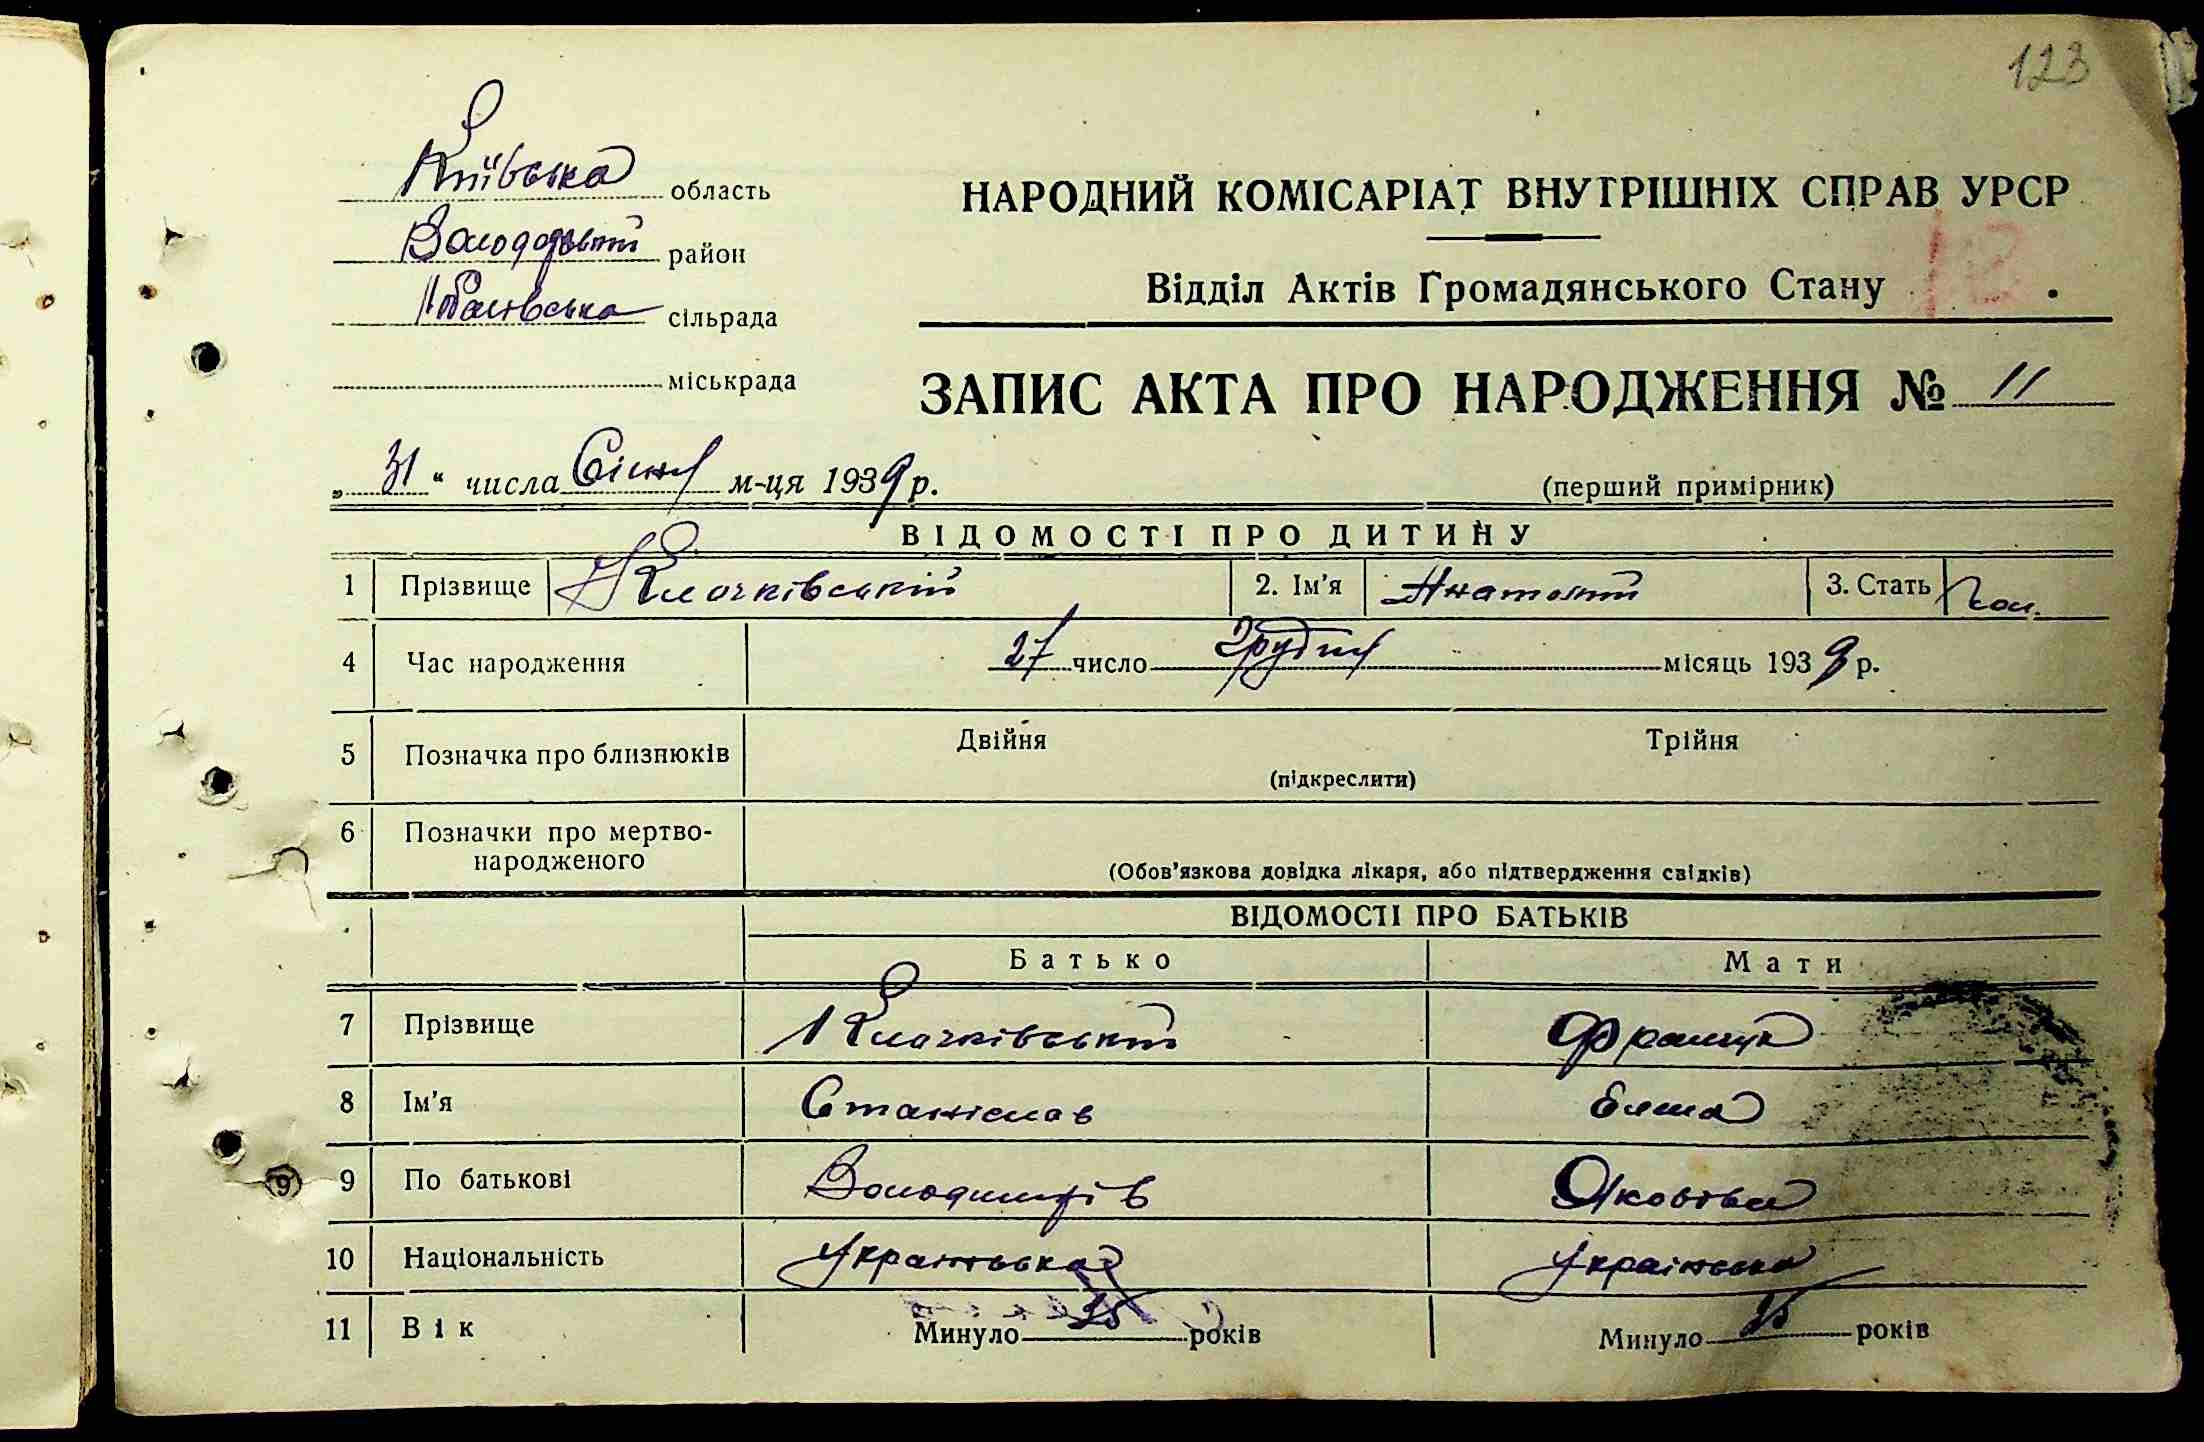 123
Київська область
Володарський район
сільрада
міськрада
НАРОДНИЙ КОМІСАРІАТ ВНУТРІШНІХ СПРАВ УРСР
Відділ Актів Громадянського Стану
ЗАПИС АКТА ПРО НАРОДЖЕННЯ № 11
„31“ числа Січня м-ця 1939 р.
(перший примірник)
ВІДОМОСТІ ПРО ДИТИНУ
1 Прізвище Клочківський 2. Ім'я Анатолій 3. Стать Чол.
4 Час народження 27 число Грудня місяць 1939 р.
5 Позначка про близнюків Двійня Трійня
(підкреслити)
6 Позначки про мертво-
народженого
(Обов'язкова довідка лікаря, або підтвердження свідків)
ВІДОМОСТІ ПРО БАТЬКІВ
Батько Мати
7 Прізвище Клочківський Франчук
8 Ім'я Станіслав
9 По батькові Володимирів Яковівна
9
10 Національність Українська Українська
11 Вік Минуло 25 років Минуло років